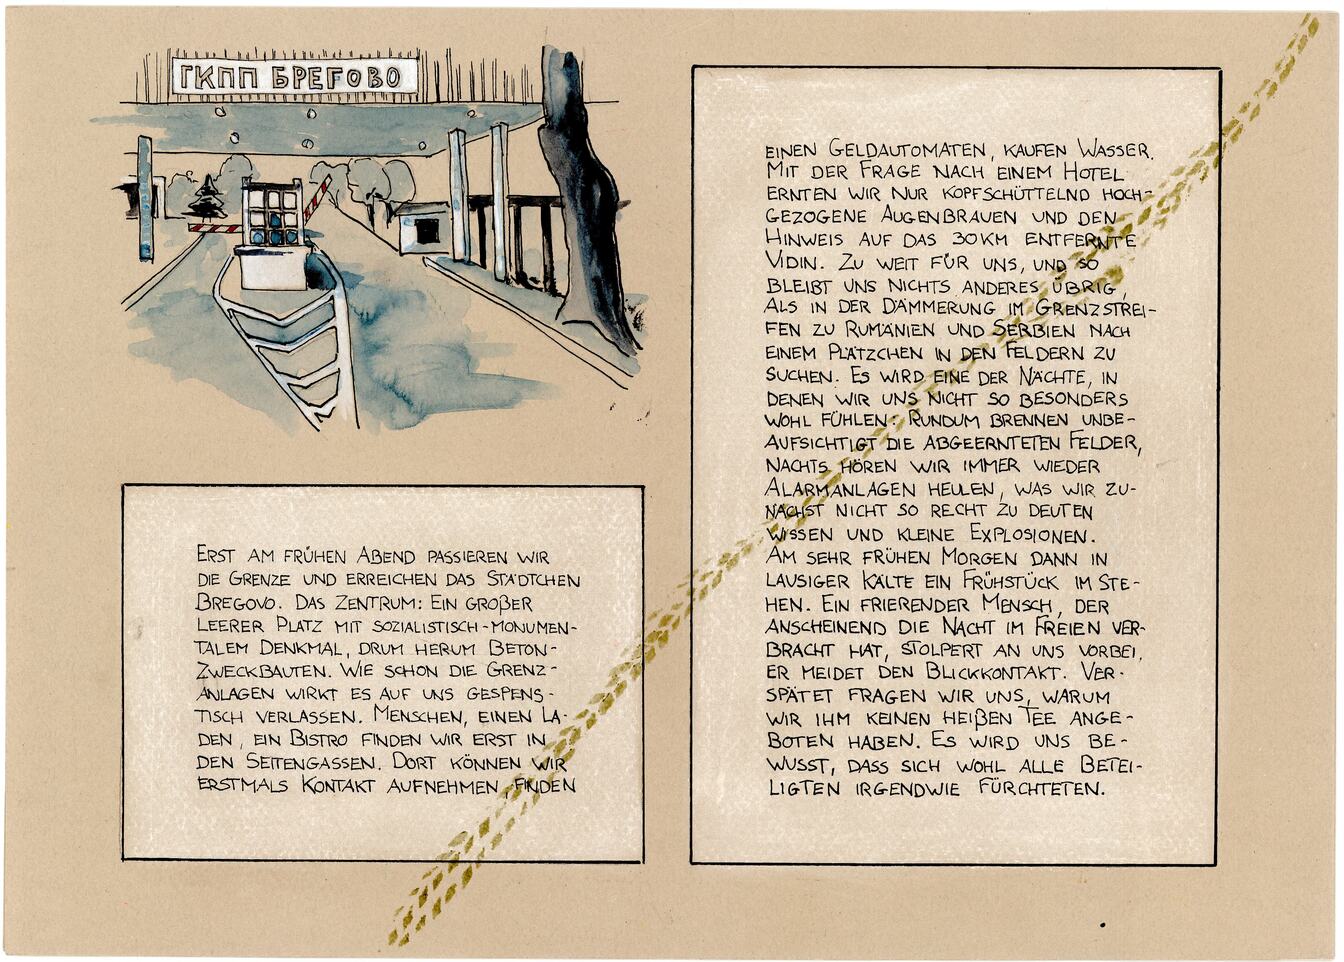 ГКПП БРЕГОВО
ERST AM FRÜHEN ABEND PASSIEREN WIR
DIE GRENZE UND ERREICHEN DAS STÄDTCHEN
BREGOVO. DAS ZENTRUM: EIN GROßER
LEERER PLATZ MIT SOZIALISTISCH-MONUMEN-
TALEM DENKMAL, DRUM HERUM BETON-
ZWECKBAUTEN. WIE SCHON DIE GRENZ-
ANLAGEN WIRKT ES AUF UNS GESPENS-
TISCH VERLASSEN. MENSCHEN, EINEN LA-
DEN, EIN BISTRO FINDEN WIR ERST IN
DEN SEITENGASSEN. DORT KÖNNEN WIR
ERSTMALS KONTAKT AUFNEHMEN, FINDEN
EINEN GELDAUTOMATEN, KAUFEN WASSER.
MIT DER FRAGE NACH EINEM HOTEL
ERNTEN WIR NUR KOPFSCHÜTTELND HOCH-
GEZOGENE AUGENBRAUEN UND DEN
HINWEIS AUF DAS 30KM ENTFERNTE
VIDIN. ZU WEIT FÜR UNS, UND SO
BLEIBT UNS NICHTS ANDERES ÜBRIG,
ALS IN DER DÄMMERUNG IM GRENZSTREI-
FEN ZU RUMÄNIEN UND SERBIEN NACH
EINEM PLÄTZCHEN IN DEN FELDERN ZU
SUCHEN. ES WIRD EINE DER NÄCHTE, IN
DENEN WIR UNS NICHT SO BESONDERS
WOHL FÜHLEN: RUNDUM BRENNEN UNBE-
AUFSICHTIGT DIE ABGEERNTETEN FELDER,
NACHTS HÖREN WIR IMMER WIEDER
ALARMANLAGEN HEULEN, WAS WIR ZU-
NÄCHST NICHT SO RECHT ZU DEUTEN
WISSEN UND KLEINE EXPLOSIONEN.
AM SEHR FRÜHEN MORGEN DANN IN
LAUSIGER KÄLTE EIN FRÜHSTÜCK IM STE-
HEN. EIN FRIERENDER MENSCH, DER
ANSCHEINEND DIE NACHT IM FREIEN VER-
BRACHT HAT, STOLPERT AN UNS VORBEI,
ER MEIDET DEN BLICKKONTAKT. VER-
SPÄTET FRAGEN WIR UNS, WARUM
WIR IHM KEINEN HEIßEN TEE ANGE-
BOTEN HABEN. ES WIRD UNS BE-
WUSST, DASS SICH WOHL ALLE BETEI-
LIGTEN IRGENDWIE FÜRCHTETEN.